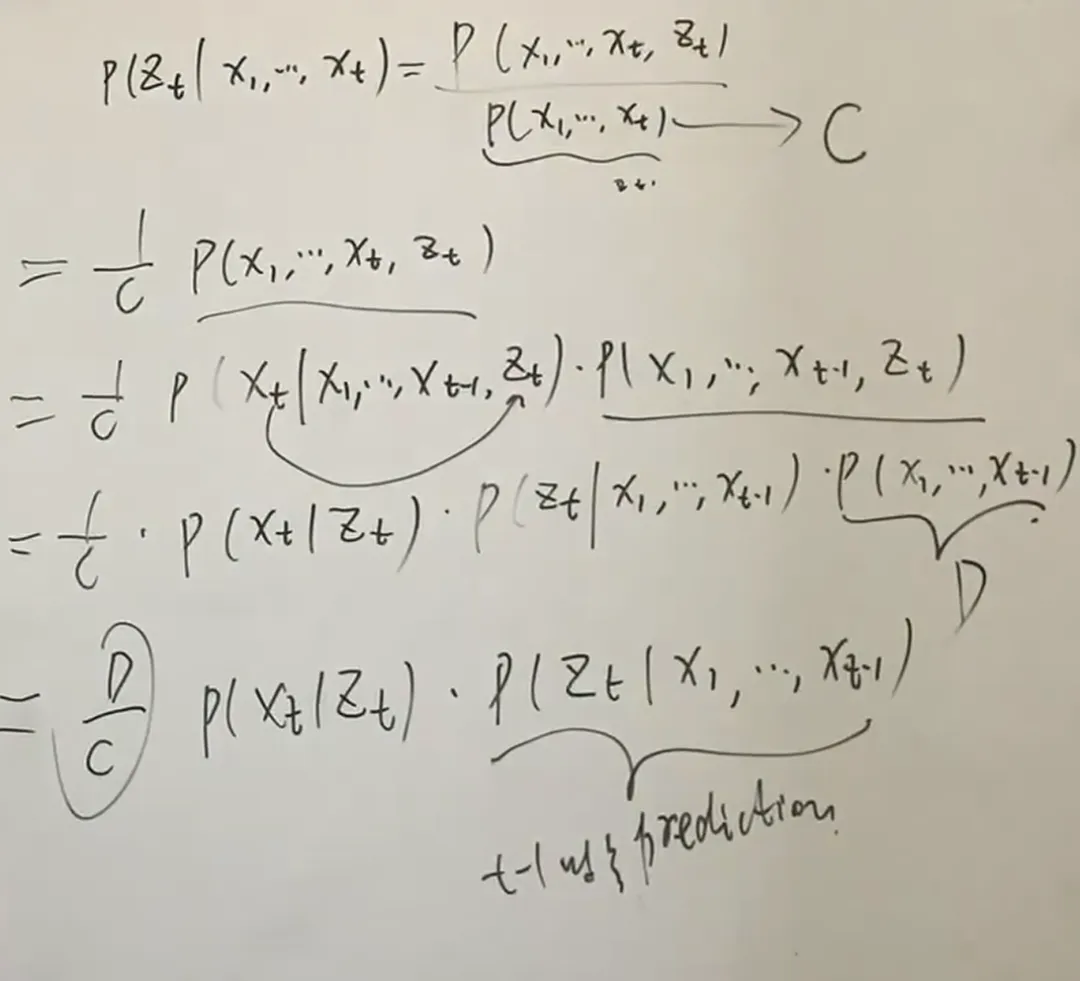 P(z_t | x_1, ..., x_t) = P(x_1, ..., x_t, z_t) / P(x_1, ..., x_t) → C
= 1/C P(x_1, ..., x_t, z_t)
= 1/C P(x_t | x_1, ..., x_{t-1}, z_t) · P(x_1, ..., x_{t-1}, z_t)
= 1/C · P(x_t | z_t) · P(z_t | x_1, ..., x_{t-1}) · P(x_1, ..., x_{t-1})
D
= D/C P(x_t | z_t) · P(z_t | x_1, ..., x_{t-1})
t-1 prediction